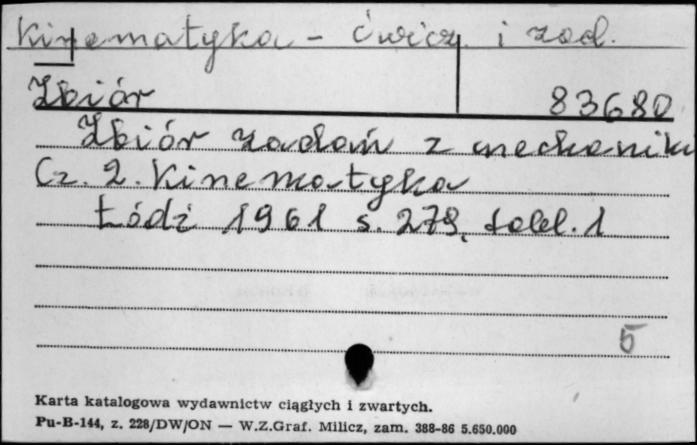 Kinematyka - ćwicz. i zad.
Zbiór 83680
Zbiór zadań z mechaniki
Cz. 2. Kinematyka
Łódź 1961 s. 279, tabl. 1
5
Karta katalogowa wydawnictw ciągłych i zwartych.
Pu-B-144, z. 228/DW/ON — W.Z.Graf. Milicz, zam. 388-86 5.650.000